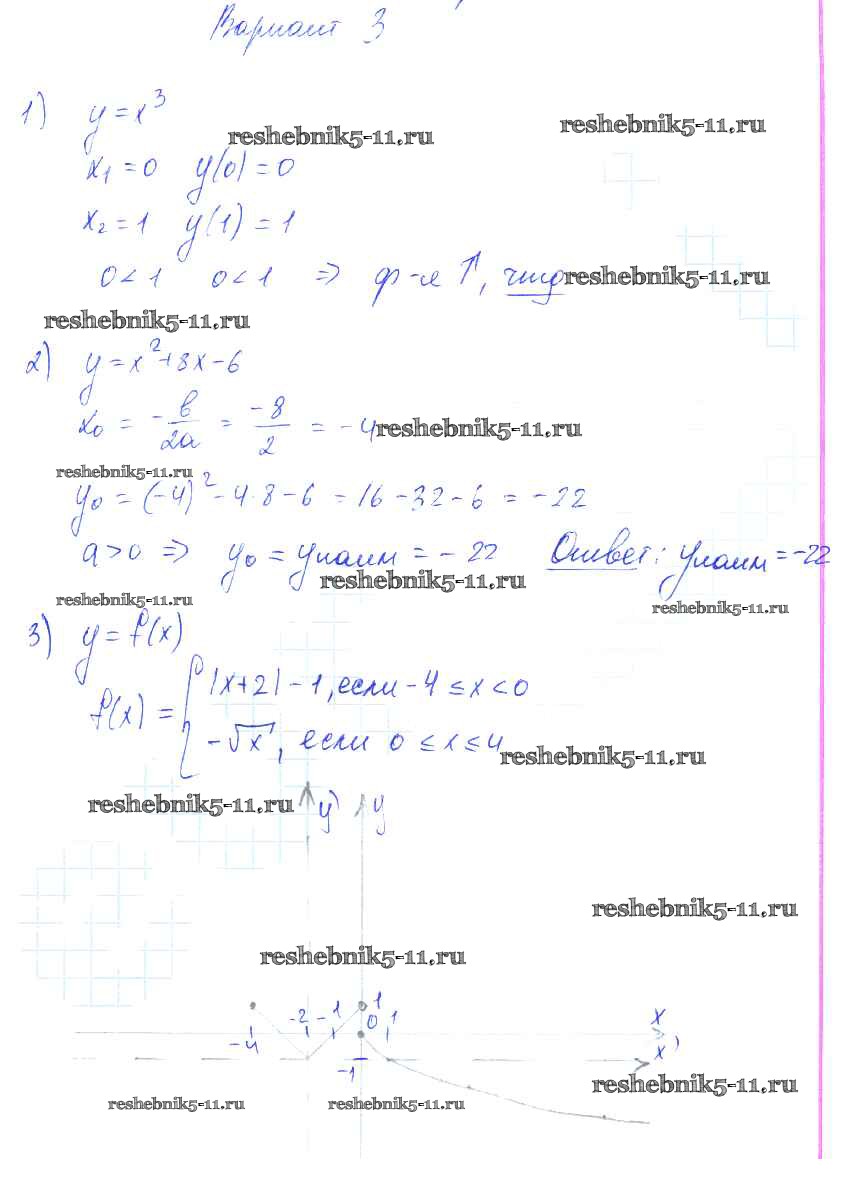 Вариант 3
1) y = x³
reshebnik5-11.ru
reshebnik5-11.ru
x₁ = 0 y(0) = 0
x₂ = 1 y(1) = 1
0 < 1 0 < 1 ⇒ ф-я ↑, reshebnik5-11.ru
reshebnik5-11.ru
2) y = x² + 8x - 6
x₀ = -b/2a = -8/2 = -4 reshebnik5-11.ru
reshebnik5-11.ru
y₀ = (-4)² - 4·8 - 6 = 16 - 32 - 6 = -22
a > 0 ⇒ y₀ = yнаим = -22 Ответ: yнаим = -22
reshebnik5-11.ru
reshebnik5-11.ru
reshebnik5-11.ru
3) y = f(x)
f(x) = { |x+2| - 1, если -4 ≤ x < 0
-√x, если 0 ≤ x ≤ 4
reshebnik5-11.ru
reshebnik5-11.ru
y' y
reshebnik5-11.ru
reshebnik5-11.ru
1
-4 -2 -1 0 1 x
x'
-1
reshebnik5-11.ru
reshebnik5-11.ru
reshebnik5-11.ru